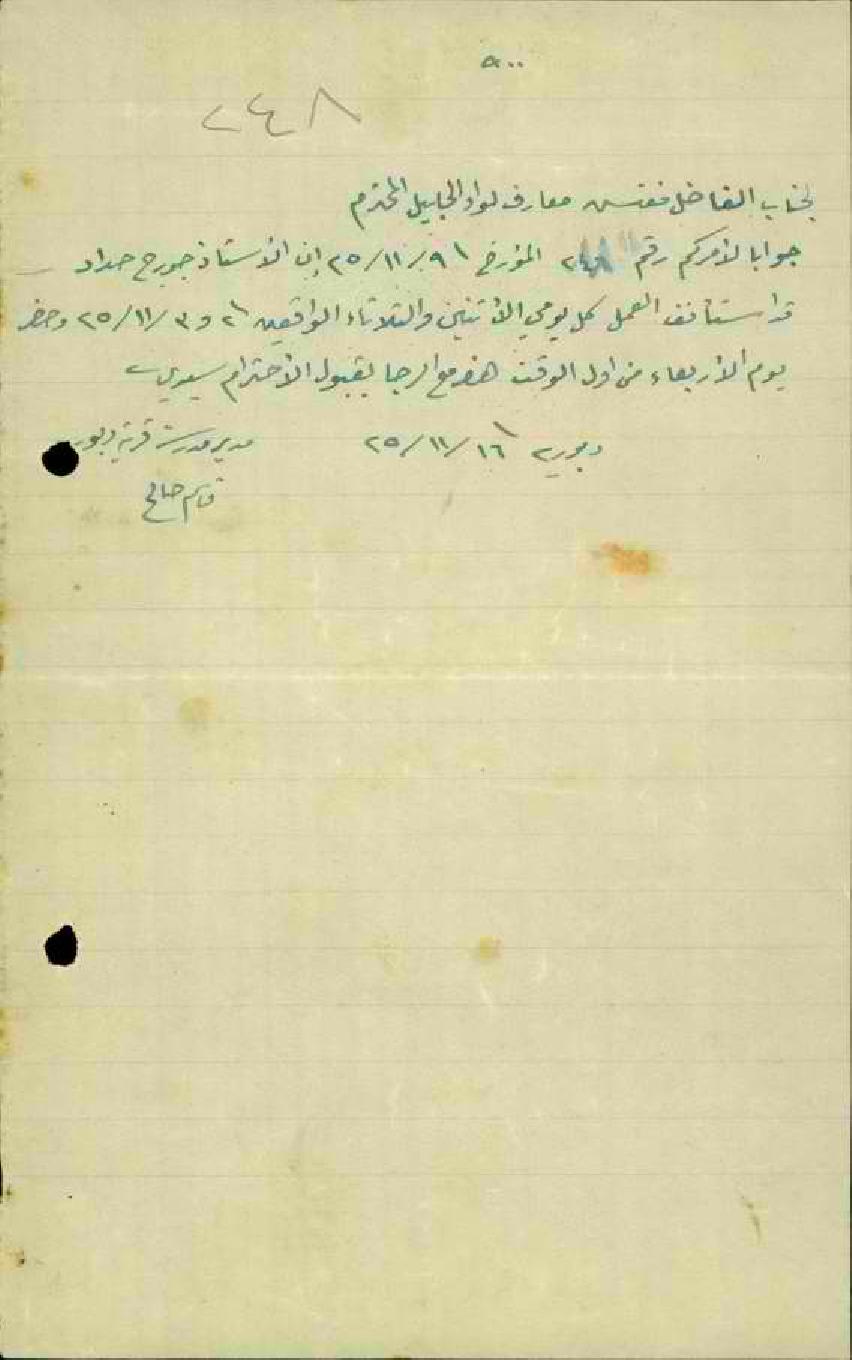 ٥٠٠
٢٤٨
لجناب الفاضل مفتش معارف لواء الجليل المحترم
جوابا لأمركم رقم ٢٤٨ المؤرخ ٩/١١/٢٥ إن الأستاذ جورج حداد
قد استأنف العمل كل يومي الأثنين والثلاثاء الواقعين ٢ و ٣/١١/٢٥ وحضر
يوم الأربعاء من اول الوقت هذا مع الرجا بقبول الأحترام سيدي
دبورية ١٦/١١/٢٥ مدير مدرسة قرية دبورية
قاسم صالح